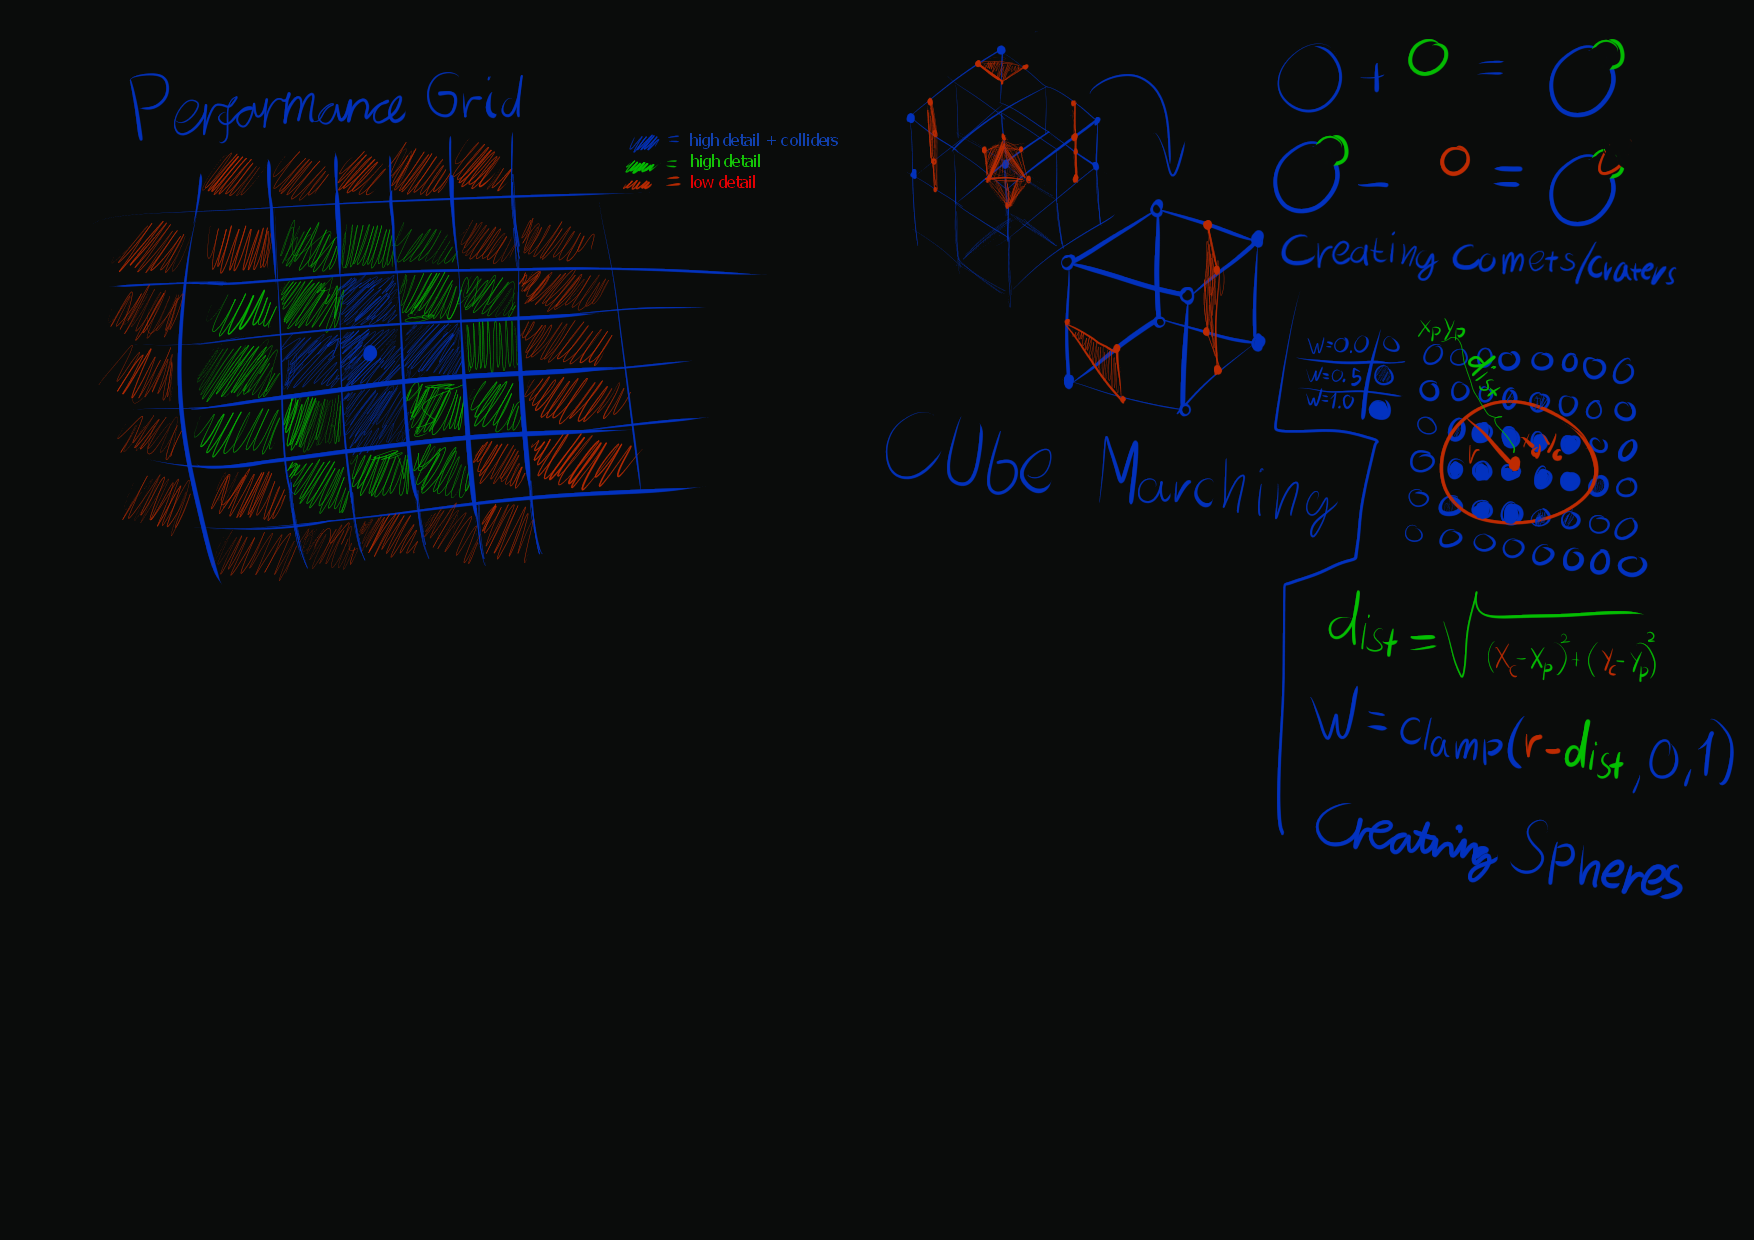 Performance Grid
= high detail + colliders
= high detail
= low detail
Cube Marching
+ =
- =
Creating Comets/Craters
w=0.0
w=0.5
w=1.0
xpyp
dist
r
xcyc
dist = √(xc-xp)²+(yc-yp)²
W = clamp(r-dist,0,1)
Creatning Spheres